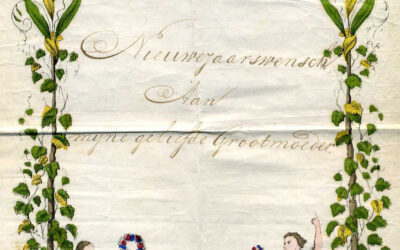 Nieuwejaarswensch
Aan
mijne geliefde Grootmoeder.